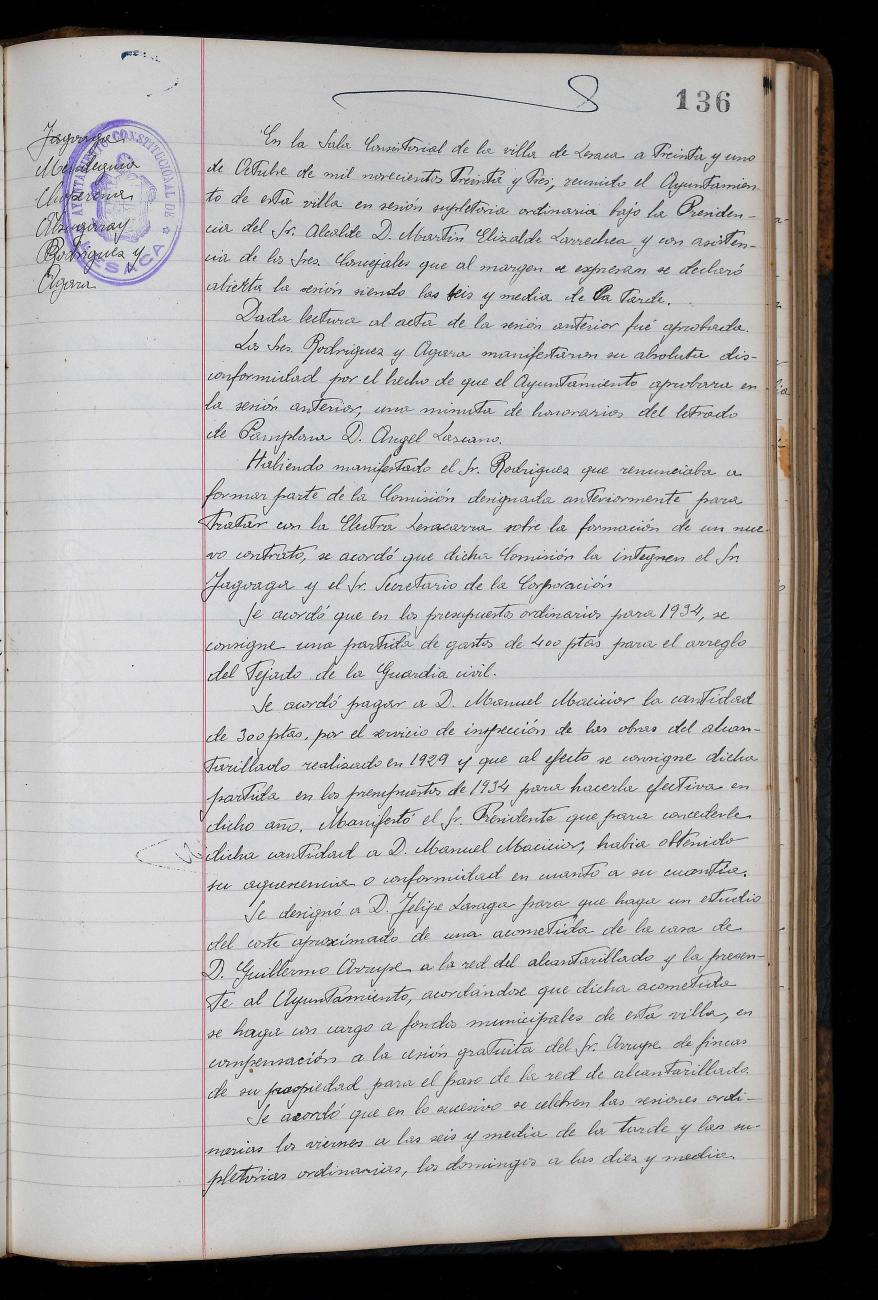 136
Jagoaga
Mendiguia
Chuperena
Altzugaray
Rodriguez y
Agara
AYUNTAMIENTO CONSTITUCIONAL DE LESACA
En la Sala Consistorial de la villa de Lesaca a Treinta y uno
de Octubre de mil novecientos Treinta y Tres, reunido el Ayuntamien-
to de esta villa en sesión supletoria ordinaria bajo la Presiden-
cia del Sr. Alcalde D. Martin Elizalde Larrechea y con asisten-
cia de los Sres. Concejales que al margen se expresan se declaró
abierta la sesión siendo las seis y media de la Tarde.
Dada lectura al acta de la sesión anterior fué aprobada.
Los Sres. Rodriguez y Agara manifestaron su absoluta dis-
conformidad por el hecho de que el Ayuntamiento aprobara en
la sesión anterior, una minuta de honorarios del letrado
de Pamplona D. Angel Lazcano.
Habiendo manifestado el Sr. Rodriguez que renunciaba a
formar parte de la Comisión designada anteriormente para
tratar con la Electra Lesacarra sobre la formación de un nue-
vo contrato, se acordó que dicha Comisión la integren el Sr.
Jagoaga y el Sr. Secretario de la Corporación
Se acordó que en los presupuestos ordinarios para 1934, se
consigne una partida de gastos de 400 ptas para el arreglo
del Tejado de la Guardia civil.
Se acordó pagar a D. Manuel Macicior la cantidad
de 300 ptas. por el servicio de inspección de las obras del alcan-
tarillado realizado en 1929 y que al efecto se consigne dicha
partida en los presupuestos de 1934 para hacerla efectiva en
dicho año. Manifestó el Sr. Presidente que para concederle
dicha cantidad a D. Manuel Macicior, habia obtenido
su aquiescencia o conformidad en cuanto a su cuantia.
Se designó a D. Felipe Lasaga para que haga un estudio
del coste aproximado de una acometida de la casa de
D. Guillermo Arrupe a la red del alcantarillado y la presen-
te al Ayuntamiento, acordándose que dicha acometida
se haga con cargo a fondos municipales de esta villa, en
compensación a la cesión gratuita del Sr. Arrupe de fincas
de su propiedad para el paso de la red de alcantarillado.
Se acordó que en lo sucesivo se celebren las sesiones ordi-
narias los viernes a las seis y media de la tarde y las su-
pletorias ordinarias, los domingos a las diez y media.